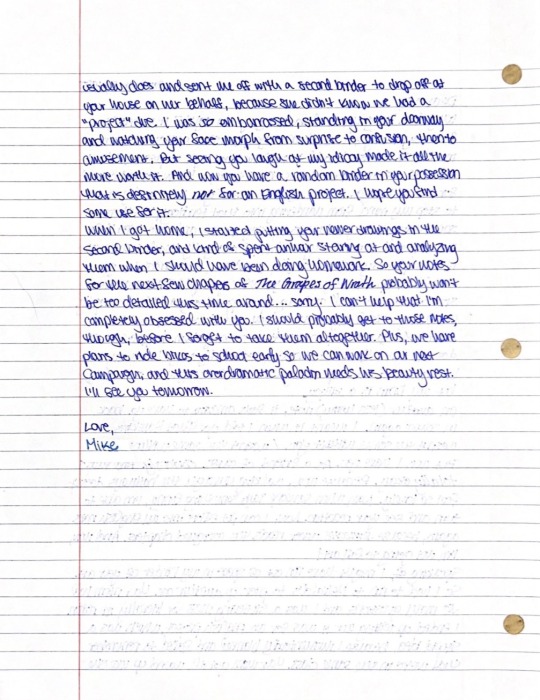 usually does and sent me off with a second binder to drop off at
your house on her behalf, because she didn't know we had a
"project" due. I was so embarrassed, standing in your doorway
and watching your face morph from surprise to confusion, then to
amusement. But seeing you laugh at my idiocy made it all the
more worth it. And now you have a random binder in your possession
that is definitely not for an English project. I hope you find
some use for it.
When I got home, I started putting your newer drawings in the
second binder, and kind of spent an hour staring at and analyzing
them when I should have been doing homework. So your notes
for the next few chapters of The Grapes of Wrath probably won't
be too detailed this time around... sorry. I can't help that I'm
completely obsessed with you. I should probably get to those notes,
though, before I forget to take them altogether. Plus, we have
plans to ride bikes to school early so we can work on our next
campaign, and this overdramatic paladin needs his beauty rest.
I'll see you tomorrow.
Love,
Mike